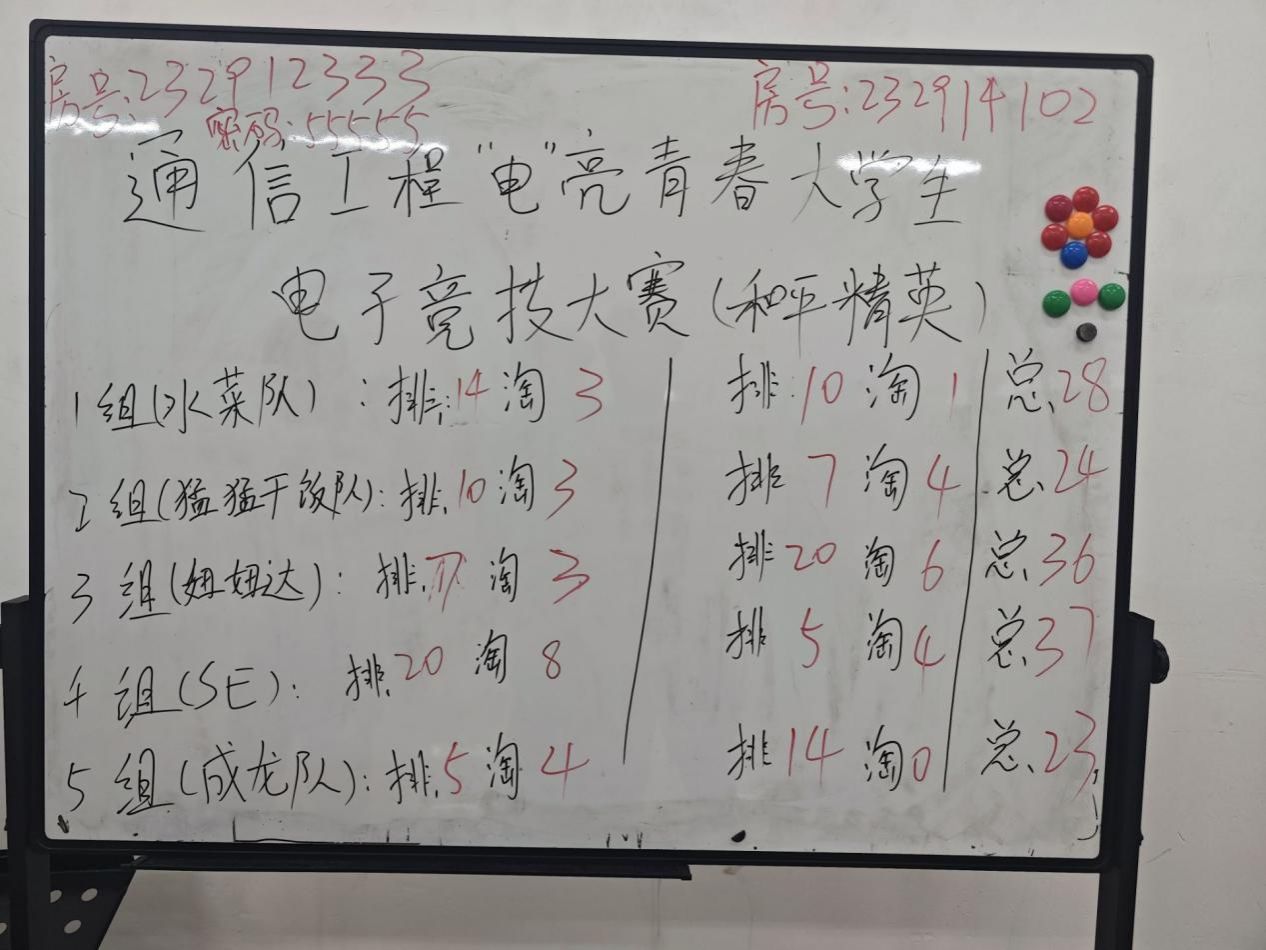 房号:232912333 房号:232914102
密码:55555
通信工程"电"亮青春大学生
电子竞技大赛(和平精英)
1组(水菜队):排:14 淘 3 排:10 淘 1 总、28
2组(猛猛干饭队):排、10 淘 3 排 7 淘 4 总、24
3组(妞妞达):排、7 淘 3 排 20 淘 6 总、36
4组(SE):排、20 淘 8 排 5 淘 4 总、37
5组(成龙队):排、5 淘 4 排 14 淘 0 总、23